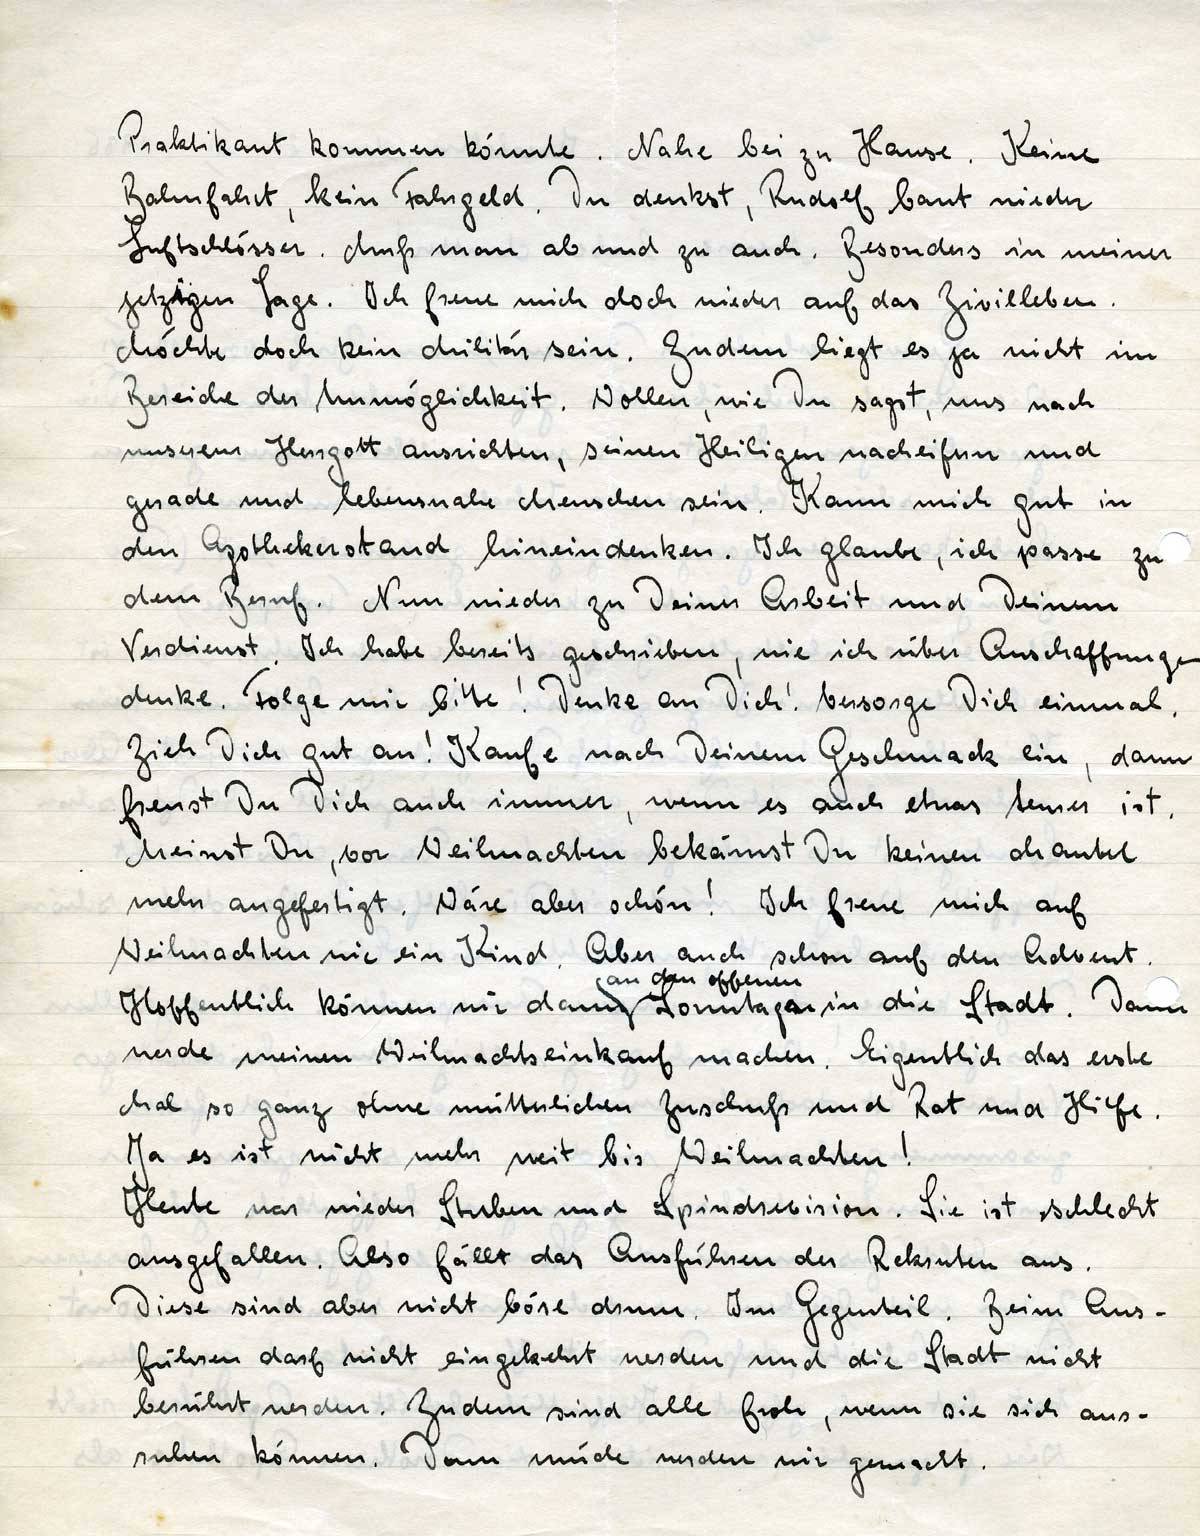 Praktikant kommen könnte. Nahe bei zu Hause. Keine
Bahnfahrt, kein Fahrgeld. Du denkst, Rudolf baut wieder
Luftschlösser. Muß man ab und zu auch. Besonders in meiner
jetzigen Lage. Ich freue mich doch wieder auf das Zivilleben.
Möchte doch kein Militär sein. Zudem liegt es ja nicht im
Bereiche der Unmöglichkeit. Wollen, wie Du sagst, uns nach
unserem Herrgott ausrichten, seinen Heiligen nacheifern und
gerade und lebensnahe Menschen sein. Kann mich gut in
den Apothekerstand hineindenken. Ich glaube, ich passe zu
dem Beruf. Nun wieder zu Deiner Arbeit und Deinem
Verdienst. Ich habe bereits geschrieben, wie ich über Anschaffunge
denke. Folge mir bitte! Denke an Dich! Versorge Dich einmal.
Zieh Dich gut an! Kaufe nach Deinem Geschmack ein, dann
freust Du Dich auch immer, wenn es auch etwas teurer ist.
Meinst Du, vor Weihnachten bekämst Du keinen Mantel
mehr angefertigt. Wäre aber schön! Ich freue mich auf
Weihnachten wie ein Kind. Aber auch schon auf den Advent.
an den offenen
Hoffentlich können wir dann Sonntagen in die Stadt. Dann
werde meinen Weihnachtseinkauf machen. Eigentlich das erste
Mal so ganz ohne mütterlichen Zuschuß und Rat und Hilfe.
Ja es ist nicht mehr weit bis Weihnachten!
Heute war wieder Stuben und Spindrevision. Sie ist schlecht
ausgefallen. Also fällt das Ausführen der Rekruten aus.
Diese sind aber nicht böse drum. Im Gegenteil. Beim Aus-
führen darf nicht eingekehrt werden und die Stadt nicht
berührt werden. Zudem sind alle froh, wenn sie sich aus-
ruhen können. Denn müde werden wir gemacht.